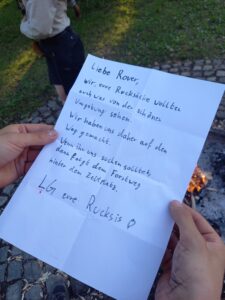 Liebe Rover,
wir eure Rucksäcke wollten
auch was von der schönen
Umgebung sehen.
Wir haben uns daher auf den
Weg gemacht.
Wenn ihr uns suchen solltet,
dann folgt dem Forstweg
hinter dem Zeltplatz.
LG eure Rucksis